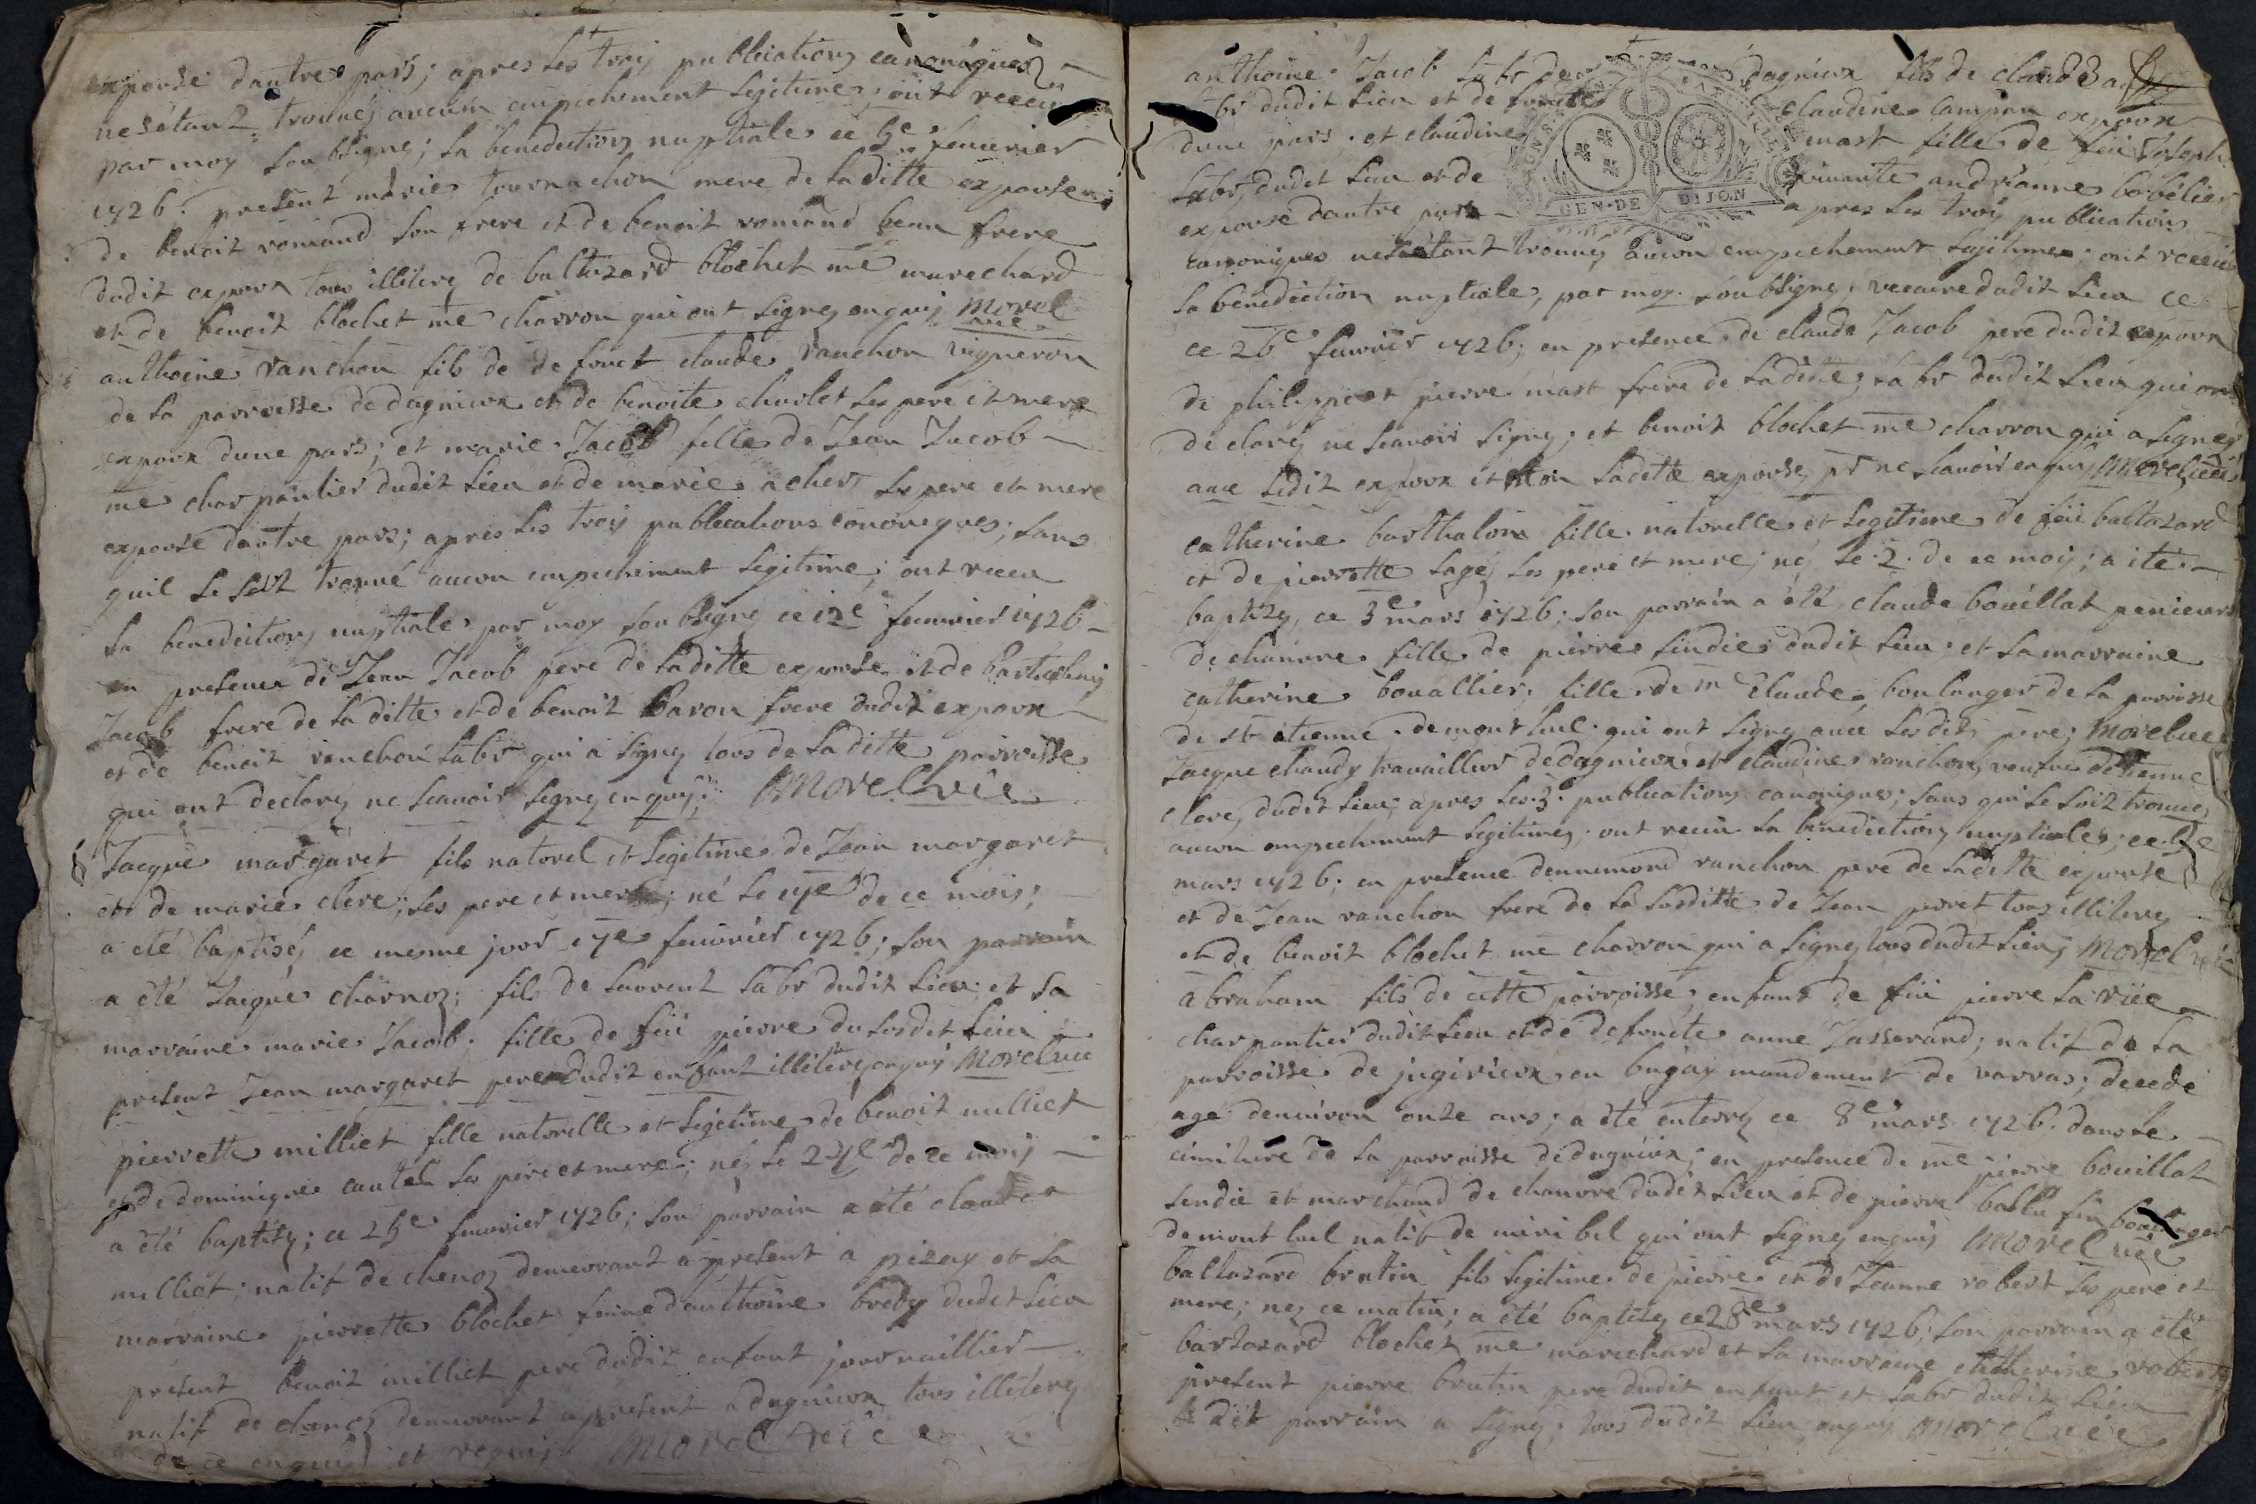 expouse dautre pars; apres les troy publications canoniques
nesétant trouvéj aucun empechement legitime; ont receu
par moy soubsigné; la benediction nuptiale ce 5e feuvrier
1726. present marie tournachon mere de laditte expouse
de benoit romand son frere et de benoit romand beau frere
dudit expoux tous illiterez de baltazard blochet me marechard
et de benoit blochet me charron qui ont signez enquis Morel
vie
anthoine ranchon fils de defunct claude ranchon vigneron
de la parroisse de dagnieux et de benoite charlet ses pere et mere
expoux dune pars; et marie Jacob fille de Jean Jacob
me charpantier dudit lieu et de marie acher ses pere et mere
expouse dautre pars; apres les troy publications canoniques; sans
quil se soit trouvé aucun empechement legitime; ont receu
la benediction nuptiale par moy soubsigné ce 12e feuvrier 1726
en presence de Jean Jacob pere de laditte expouse et de Barthelmy
Jacob frere de laditte et de benoit Baron frere dudit expoux
et de benoit ranchon labr qui a signé tous de laditte parroisse
qui ont declaréz ne scavoir signé enquis Morel vie
Jacque margaret fils naturel et legitime de Jean margaret
et de marie clere; ses pere et mere; né le 17e de ce mois;
a eté baptiséj ce mesme jour 17e feuvrier 1726; son parrain
a été Jacque charnoz; fils de laurent labr dudit lieu et sa
marraine marie Jacob; fille de feu pierre du susdit lieu
present Jean margaret pere dudit enfant illiterez enquis Morel vie
pierrette milliet fille naturelle et legitime de benoit milliet
et de dominique cautel ses pere et mere; néz le 24e de ce mois
a été baptiséz; ce 25e feuvrier 1726; son parrain a été claude
milliet; natif de chenoz demeurant a present a pizay et sa
marraine pierrette blochet femme d'anthoine breby dudit lieu
present benoit milliet pere dudit enfant journaillier
natif de chenoz demeurant a present a dagnieux tous illiterez
de ce enquis et requis Morel vie
anthoine Jacob labr de dagnieux fils de claude Jacob
labr dudit lieu et de claudine campan expoux
dune pars; et claudine mart fille de feu Joseph
labr dudit lieu et de vivante andrianne bobelier
expouse dautre pars apres les troy publications
GEN · DE DIJON
canoniques nesetant trouvéj aucun empechement legitime; ont receu
la benediction nuptiale, par moy soubsigné, viccaire dudit lieu ce
ce 26e feuvrier 1726; en presence de claude Jacob pere dudit expoux
de philippe et pierre mart frere de laditte; labr dudit lieu qui ont
declaréj ne scavoir signé; et benoit blochet me charron qui a signéz
avec ledit expoux et non laditte expouse pr ne scavoir enquis Morel vie
catherine barthalon fille naturelle et legitime de feu baltazard
et de pierrette lagé; ses pere et mere; néz le 2 de ce mois; a été
baptizéz, ce 3e mars 1726; son parrain a été claude bouéllat
de chanvre fille de pierre sindic dudit lieu; et sa marraine
catherine bouallier, fille de m claude, boulanger de la parroisse
de st etienne de mont luel qui ont signé avec lesdits pere; Morel vie
Jacque chaudy travailleur de dagnieux et claudine ranchon veufve detienne
clere, dudit lieu; apres les 3 publications canoniques; sans qui se soit trouvéz
aucun empechement legitimes; ont receu la benediction nuptiale; ce 5e
mars 1726; en presence dennemond ranchon pere de laditte expouse
et de Jean ranchon frere de la susditte de Jean perret tous illiterez
et de benoit blochet me charron qui a signéz tous dudit lieu Morel vie
abraham fils de cette parroisse, enfant de feu pierre la rüe
charpantier dudit lieu et de defuncte anne Jasserand; natif de la
parroisse de jugirieux en bugay mandement de varras; decede
agé denviron onze ans; a été enterréz ce 8e mars 1726 dans le
cimitiere de la parroisse de dagnieux; en presence de me pierre bouillat
sendic et marchand de chanvre dudit lieu et de pierre ballu fin boulanger
de mont luel natif de miribel qui ont signéz enquis Morel vie
baltazard brutin fils legitime de pierre et de Jeanne robert ses pere et
mere; néz ce matin; a été baptizéz ce 28e mars 1726; son parrain a été
bartazard blochet me marechard et sa marraine catherine robert
present pierre brutin pere dudit enfant et labr dudit lieu
le dit parrain a signéz; tous dudit lieu enquis Morel vie